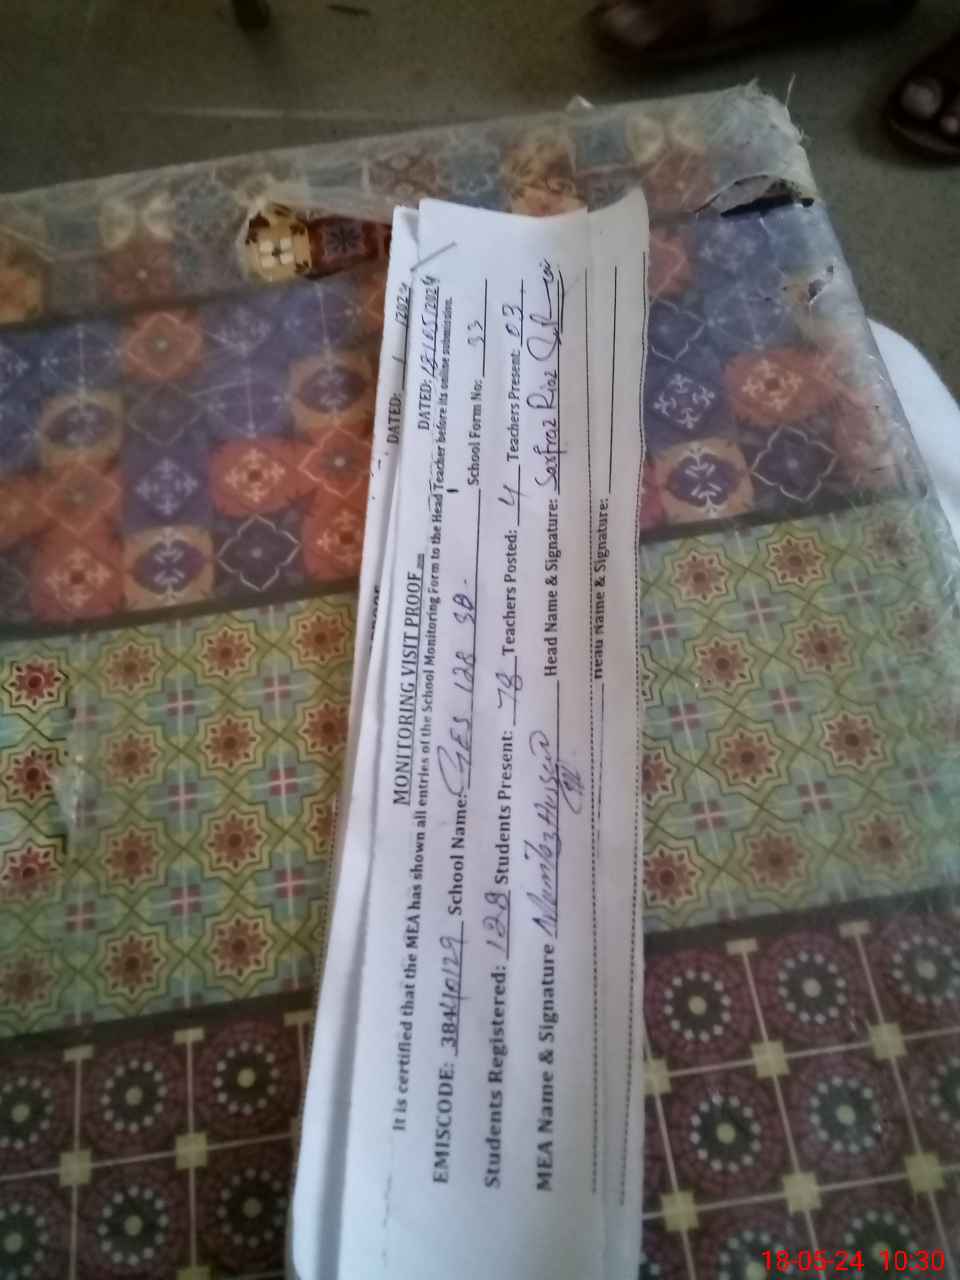 DATED: / /2024
MONITORING VISIT PROOF DATED: 18/05/2024
It is certified that the MEA has shown all entries of the School Monitoring Form to the Head Teacher before its online submission.
EMISCODE: 38440129 School Name: GES 128 SB. School Form No: 33
Students Registered: 128 Students Present: 78 Teachers Posted: 4 Teachers Present: 03
MEA Name & Signature Mumtaz Hussain Head Name & Signature: Sarfraz Riaz
Head Name & Signature:
18-05-24 10:30